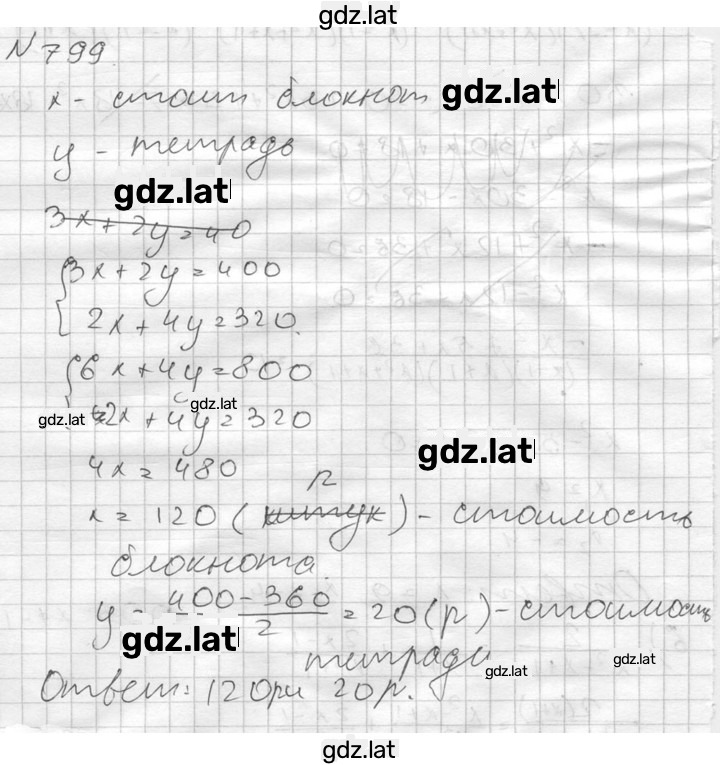 gdz.lat
N 799
x - стоит блокнот gdz.lat
y - тетрадь
gdz.lat
3x + 2y = 40
3x + 2y = 400
2x + 4y = 320.
6x + 4y = 800
gdz.lat
gdz.lat
2x + 4y = 320
gdz.lat
4x = 480
р
x = 120 (штук) - стоимость
блокнота.
y = 400 - 360 / 2 = 20 (р) - стоимость
gdz.lat
тетради
gdz.lat
gdz.lat
Ответ: 120р и 20р.
gdz.lat